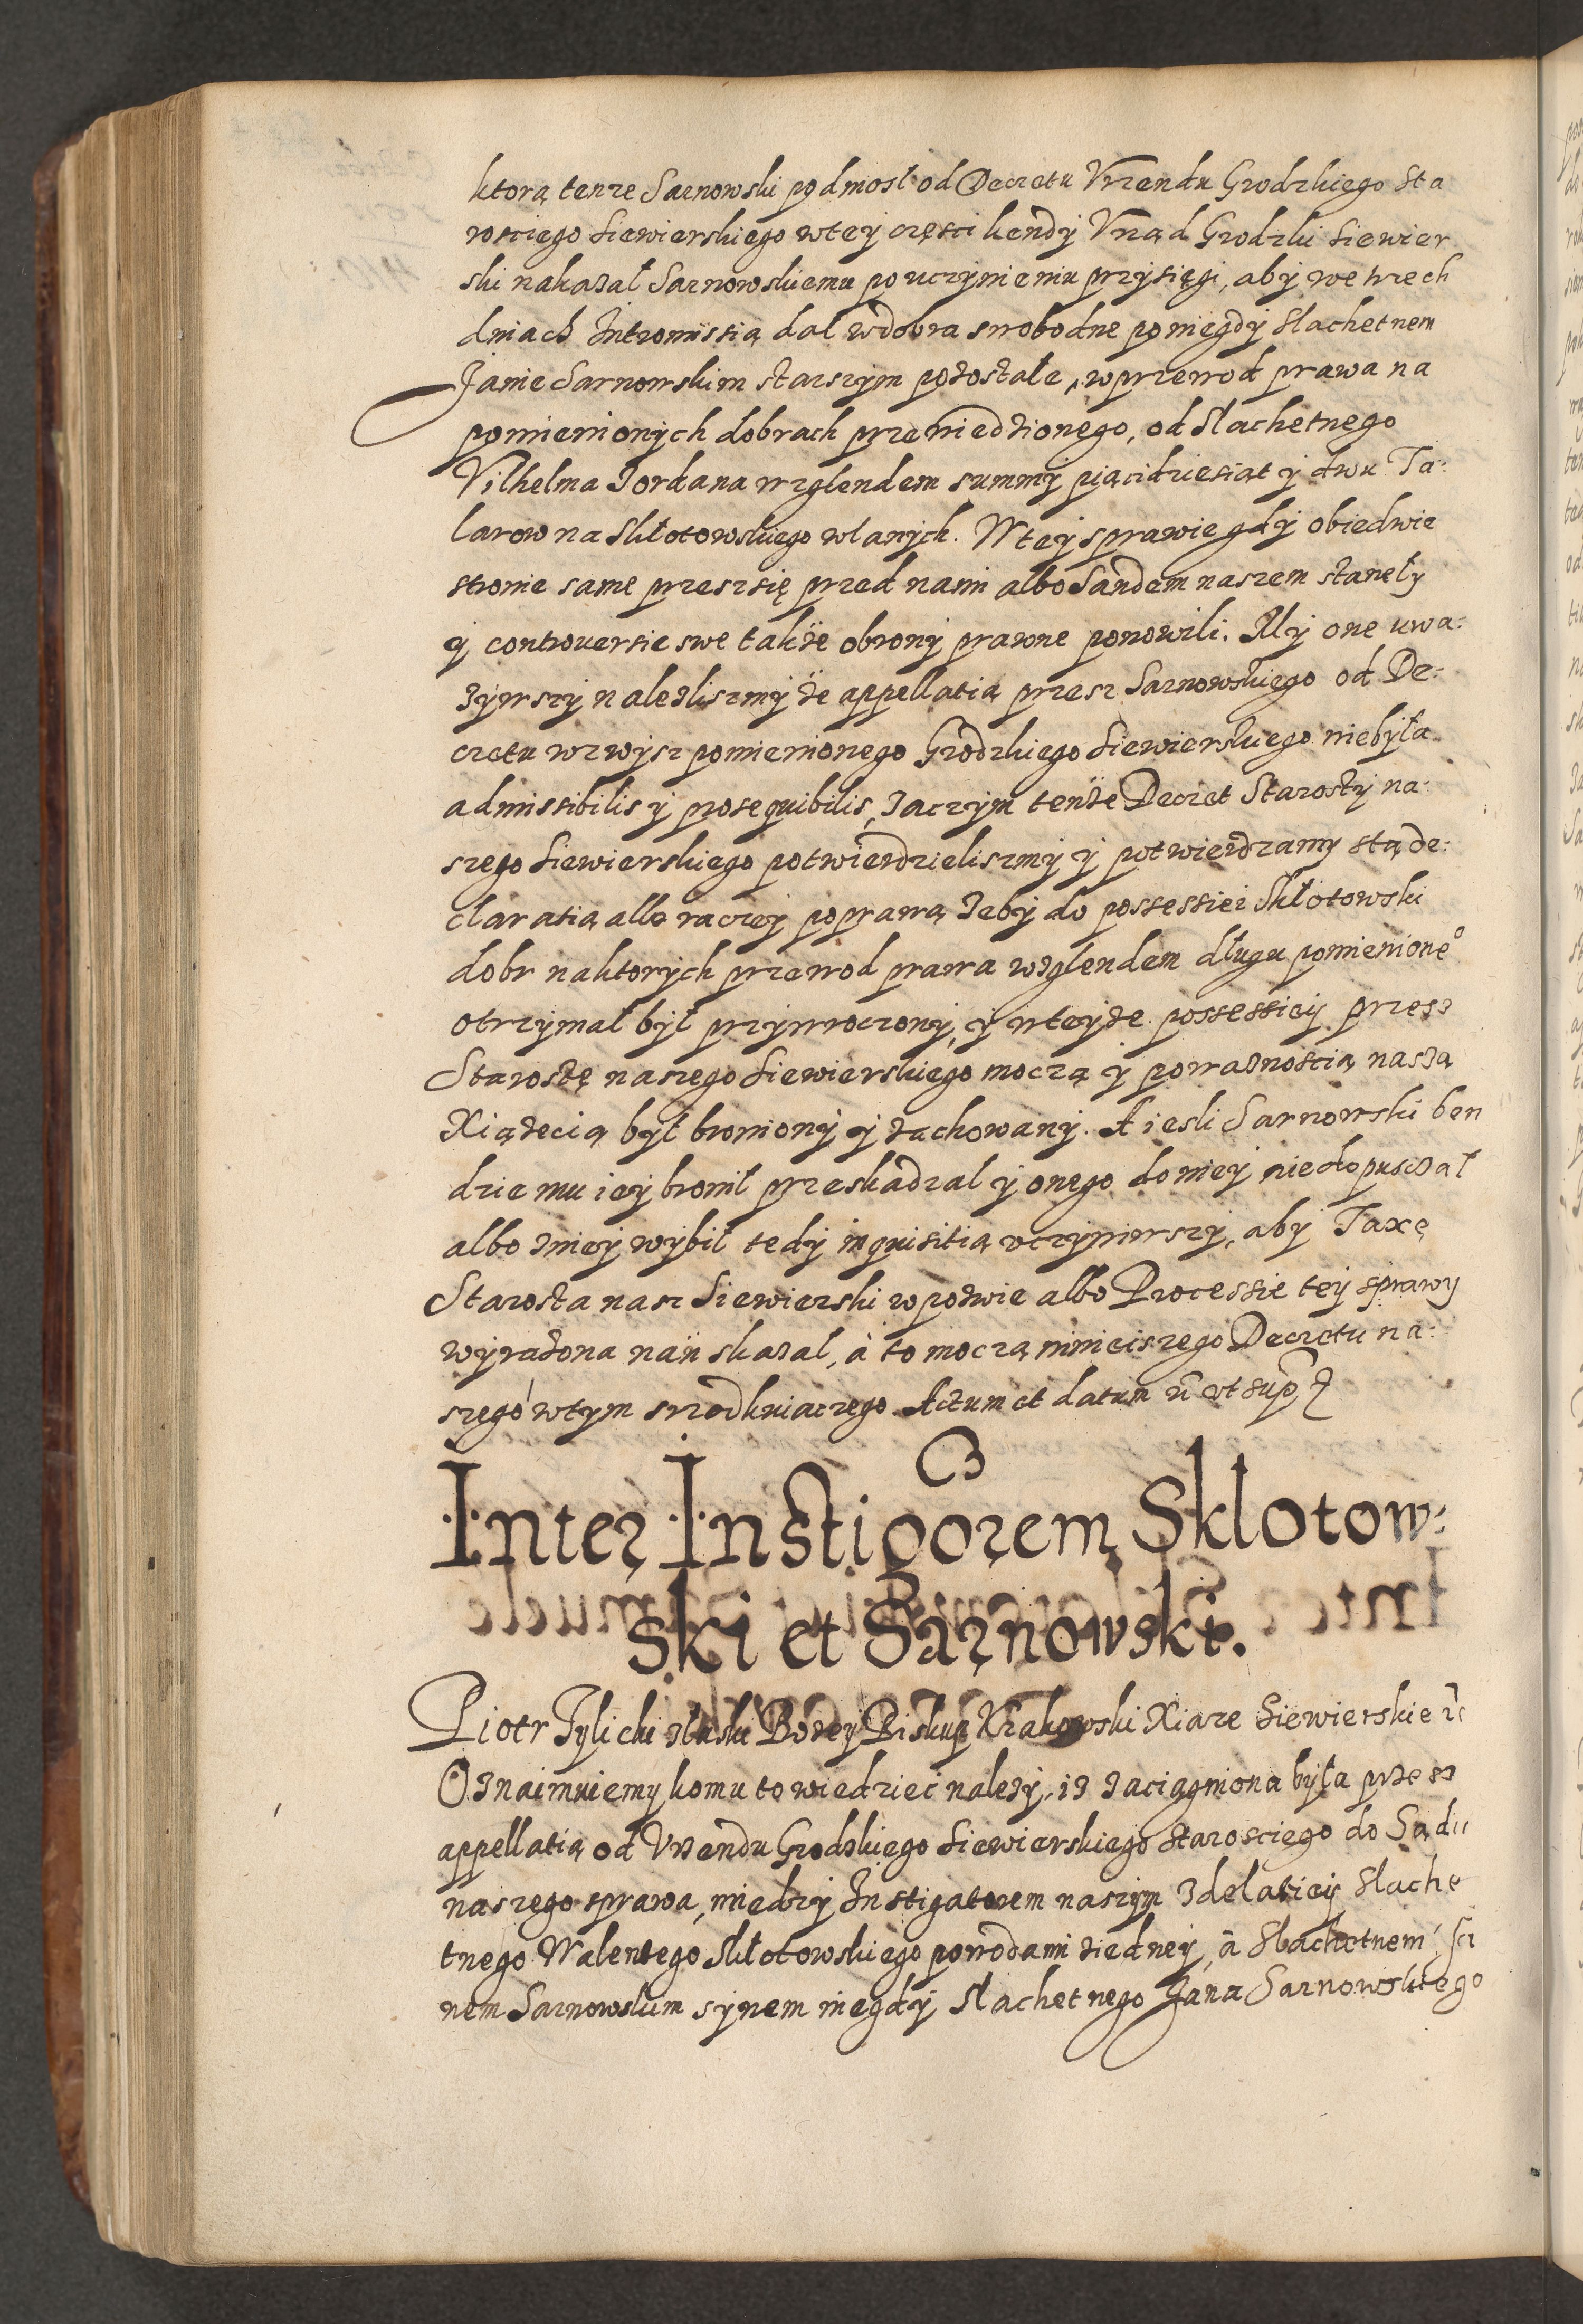 ktorą tenze Sarnowski podniosł od Decretu Vrzendu Grodzkiego Sta
rosciego Siewierskiego wtey części kendy Vrząd Grodzki Siewier
ski nakazał Sarnowskiemu po uczynieniu przysięgi, aby we trzech
dniach Intromissią dał wdobra swobodne poniegdy Slachetnem
Janie Sarnowskim starszym pozostałe, wprzewod prawa na
pomienionych dobrach przewiedzionego, od Slachetnego
Vilhelma Jordana wzglendem summy pięcidziesiąt y dwu Ta:
larow na Skłotowskiego wlanych. W tey sprawie gdy obiedwie
stronie same przez się przed nami albo Sandem naszem stanęły
y controuersie swe także obrony prawne ponowili. My one uwa:
żywszy nalezliszmy że appellatia przesz Sarnowskiego od De:
cretu wzwysz pomienionego Grodzkiego Siewierskiego niebyła
admissibilis y prosequibilis, zaczym tenże Decret Starosty na:
szego Siewierskiego potwierdzieliszmy y potwierdzamy stą de:
claratią albo raczey poprawą żeby do possessiei Skłotowski
dobr naktorych przewod prawa wzglendem długu pomienione°
otrzymał był przywroczony, y wteyże possessiey przesz
Starostę naszego Siewierskiego moczą y powaznoscią naszą
Xiążecią był broniony y zachowany. A iesli Sarnowski ben
dzie mu iey bronił przeskadzał y onego doniey niedopusczał
albo zniey wybił tedy inquisitią vczyniwszy, aby Taxę
Starosta nasz Siewierski wpozwie albo Processie tey sprawy
wyrażona nań skazał, à to moczą ninieiszego Decretu na:
szego wtym srzodkuiaczego. Actum et datum ut sup
Inter Instigorem Sklotow:
ski et Sarnowski.
Piotr Tylicki złaski Bozey Biskup Krakowski Xiaze Siewierskie etc
Oznaimuiemy komu to wiedziec należy, iz zaciągniona była przesz
appellatią od Vrzendu Grodzkiego Siewierskiego Starosciego do Sądu
naszego sprawa, miedzy Instigatorem naszym zdelatiey Slache
tnego Walentego Skłotowskiego powodami ziedney, à Slachetnem
nem Sarnowskim synem niegdy Slachetnego Jana Sarnowskiego